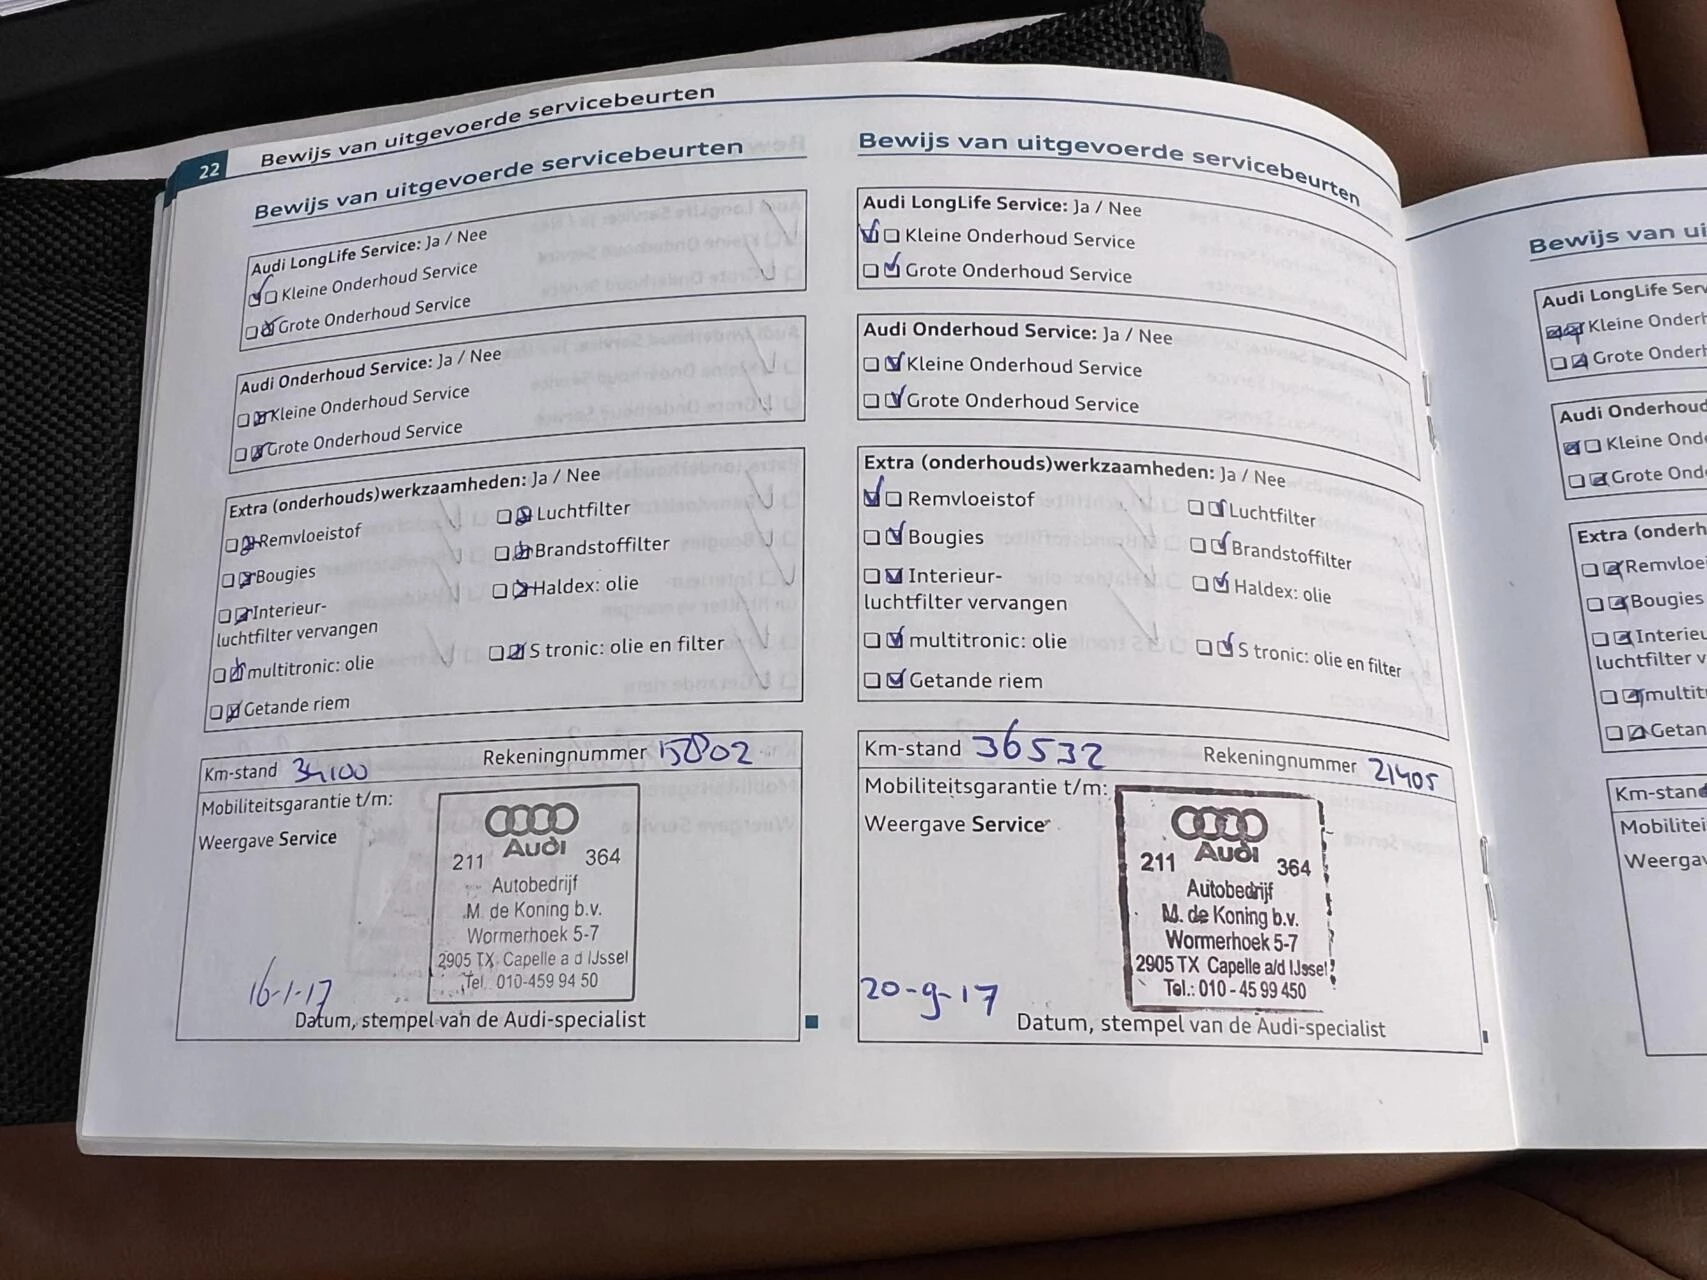 22
Bewijs van uitgevoerde servicebeurten
Bewijs van uitgevoerde servicebeurten
Audi LongLife Service: Ja / Nee
Kleine Onderhoud Service
Grote Onderhoud Service
Audi Onderhoud Service: Ja / Nee
Kleine Onderhoud Service
Grote Onderhoud Service
Extra (onderhouds)werkzaamheden: Ja / Nee
Remvloeistof
Luchtfilter
Bougies
Brandstoffilter
Interieur-
luchtfilter vervangen
Haldex: olie
multitronic: olie
S tronic: olie en filter
Getande riem
Km-stand 34100
Rekeningnummer
Mobiliteitsgarantie t/m:
Weergave Service
Audi
211 364
Autobedrijf
M. de Koning b.v.
Wormerhoek 5-7
2905 TX Capelle a d IJssel
Tel. 010-459 94 50
16-1-17
Datum, stempel van de Audi-specialist
Bewijs van uitgevoerde servicebeurten
Audi LongLife Service: Ja / Nee
Kleine Onderhoud Service
Grote Onderhoud Service
Audi Onderhoud Service: Ja / Nee
Kleine Onderhoud Service
Grote Onderhoud Service
Extra (onderhouds)werkzaamheden: Ja / Nee
Remvloeistof
Luchtfilter
Bougies
Brandstoffilter
Interieur-
luchtfilter vervangen
Haldex: olie
multitronic: olie
S tronic: olie en filter
Getande riem
Km-stand 36532
Rekeningnummer 21405
Mobiliteitsgarantie t/m:
Weergave Service
Audi
211 364
Autobedrijf
M. de Koning b.v.
Wormerhoek 5-7
2905 TX Capelle a/d IJssel
Tel.: 010 - 45 99 450
20-9-17
Datum, stempel van de Audi-specialist
Bewijs van ui
Audi LongLife Serv
Kleine Onderh
Grote Onderh
Audi Onderhoud
Kleine Onde
Grote Onde
Extra (onderh
Remvloe
Bougies
Interieu
luchtfilter v
multit
Getan
Km-stand
Mobilitei
Weergav